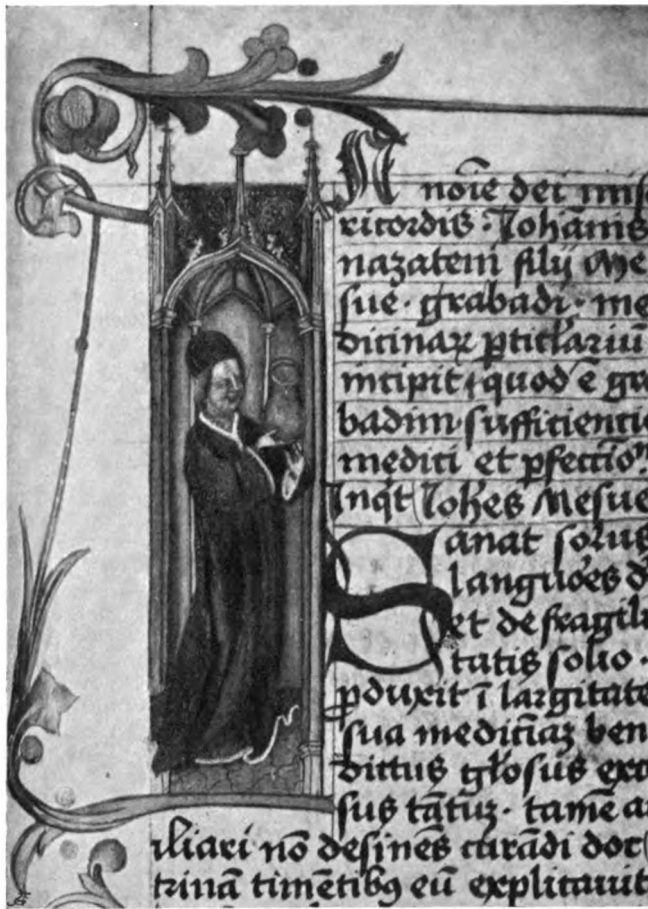 N noīe dei mise
ricordis · Johannis
nazareni filij Me
sue · grabadi · me
dicinaꝝ pticl̄ariū
incipit · quod ē gra
badim · sufficientie
medici et pfectiōn
Inqͥt Joh̄es Mesue
Sanat solus
languōes d
et de fragili
tatis solio ·
ꝓduxit ī largitate
sua mediciāꝫ ben
dictus gl̄osus exc
sus tātuꝫ · tamē a
iliari nō desinēs curādi doc
trinā timētibꝯ eū explicauit